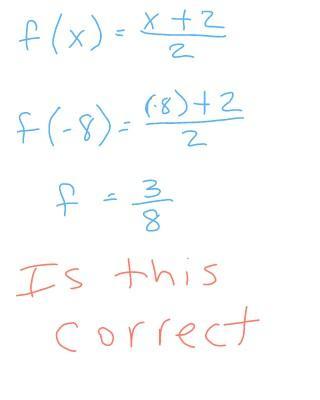 f(x) = x + 2 / 2
f(-8) = (-8) + 2 / 2
f = 3 / 8
Is this
correct